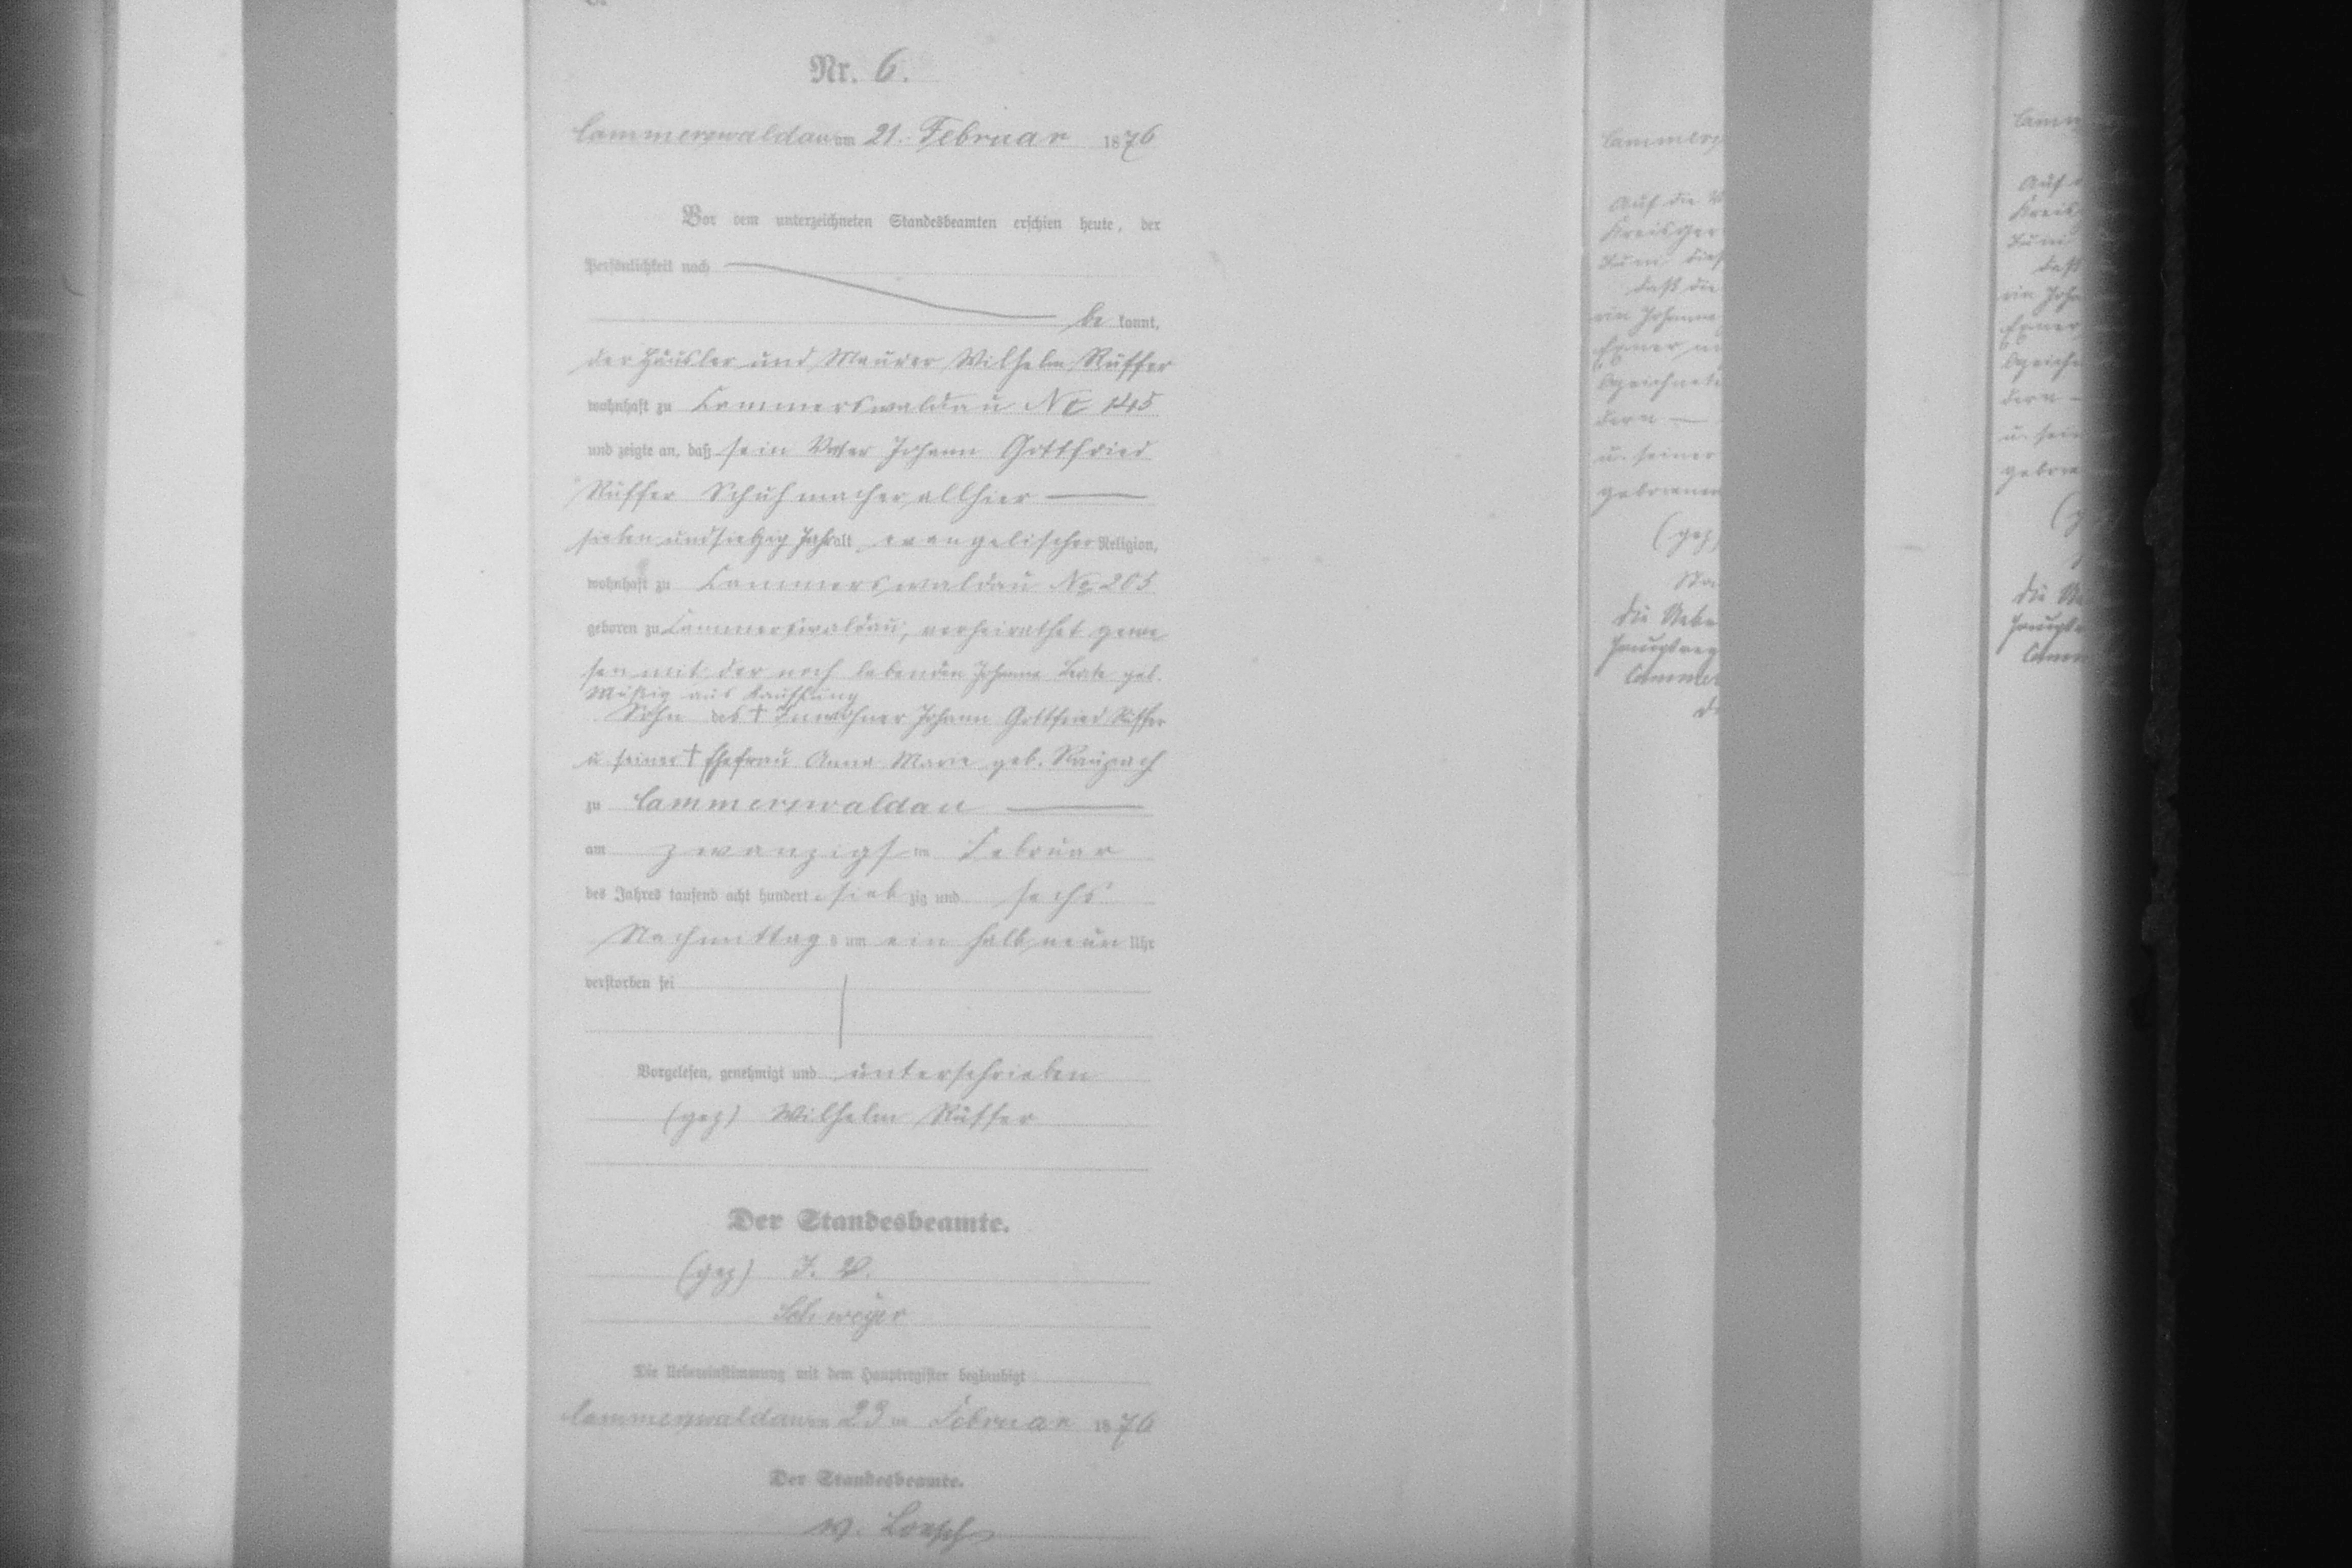 Nr. 6.
Cammerswaldau am 21. Februar 1876
Vor dem unterzeichneten Standesbeamten erschien heute, der
Persönlichkeit nach
be kannt,
der Häusler und Maurer Wilhelm Rüffer
wohnhaft zu Cammerswaldau No 145
und zeigte an, daß sein Vater Johann Gottfried
Rüffer Schuhmacher allhier —
sieben und siebzig Jahr alt evangelischer Religion,
wohnhaft zu Cammerswaldau No 205
geboren zu Cammerswaldau, verheirathet gewe
sen mit der noch lebenden Johanne Beate geb.
aus Kauffung
Sohn des † Inwohner Johann Gottfried Rüffer
u. seiner † Ehefrau Anna Marie geb. Raupach
zu Cammerswaldau —
am zwanzigsten Februar
des Jahres tausend acht hundert sieb zig und sechs
Nachmittag s um ein halb neun Uhr
verstorben sei
Vorgelesen, genehmigt und unterschrieben
(gez) Wilhelm Rüffer
Der Standesbeamte.
(gez) I. V.
Die Uebereinstimmung mit dem Hauptregister beglaubigt
Cammerswaldau am 23 ten Februar 1876
Der Standesbeamte.
Cammers
Auf die
Kreisger
Juni dies
daß die
ein Johann
bezeichnet
dern —
u. seiner
geborenen
(gez)
Die Uebe
Hauptreg
Cammer
Camm
Auf
Kreis
Juni
daß
ein Joha
bezeich
dern —
u. sein
gebore
Die Ue
Hauptr
Camm